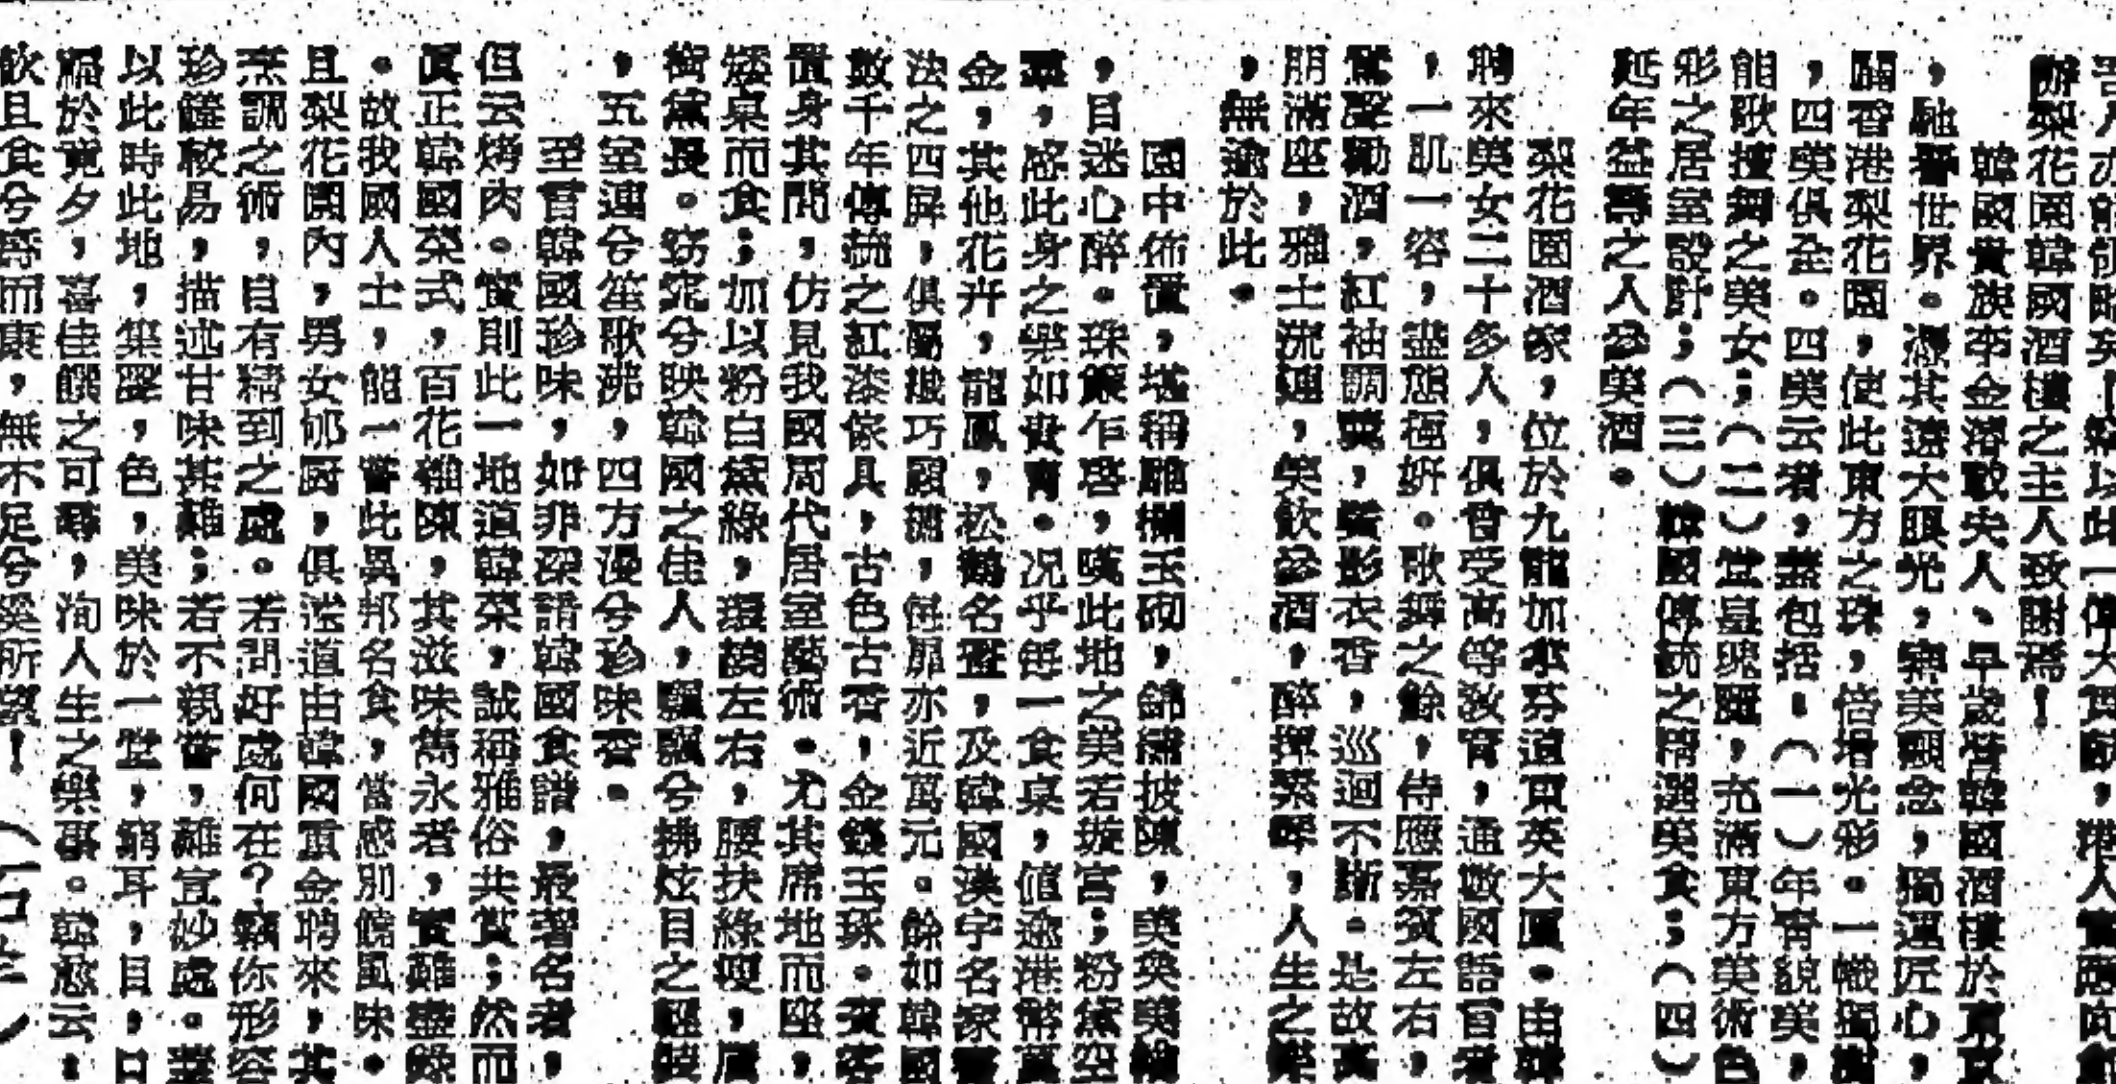 吾人亦能領略矣!際以此一偉大貢獻,港人實應向
辦梨花園韓國酒樓之主人致謝焉!
韓國貴族李金濬敏央人、早歲營韓國酒樓於東京
,馳譽世界。憑其遠大眼光,審美觀念,獨運匠心,
闢香港梨花園,使此東方之珠,倍增光彩。一幟獨樹
,四美俱全。四美云者,蓋包括:(一)年青貌美,
能歌擅舞之美女;(二)堂皇瑰麗,充滿東方美術色
彩之居室設計;(三)韓國傳統之精選美食;(四)
延年益壽之人參美酒。
梨花園酒家,位於九龍加拿芬道東英大厦。由韓
聘來美女二十多人,俱曾受高等教育,通數國語言者
,一肌一容,盡態極妍。歌舞之餘,侍應嘉賓左右,
鶯聲勸酒,紅袖調羹,鬢影衣香,巡迴不斷。是故高
朋滿座,雅士流連,笑飲參酒,醉揮琴咩,人生之樂
,無逾於此。
園中佈置,堪稱雕欄玉砌,錦繡披陳,美奐美輪
,目迷心醉。珠簾乍啓,嘆此地之美若璇宮;粉黛空
羣,感此身之樂如貴胄。况乎每一食桌,値逾港幣萬
金,其他花卉,龍鳳,松鶴名壺,及韓國漢字名家書
法之四屏,俱屬纖巧顯
,每扉亦近萬元。餘如韓國
數千年傳統之紅漆傢具,古色古香,金鏤玉琢。賓客
置身其間,仿見我國周代居室藝術。尤其席地而座,
矮桌而食;加以粉白黛綠,環繞左右,腰扶綠嫂,
黛長。窈窕兮映韓國之佳人,飄飄兮拂炫目之輕
,五室連兮笙歌沸,四方漫兮珍味香。
至言韓國珍味,如非深諳韓國食譜,最著名者,
但云烤肉。實則此一地道韓菜,誠稱雅俗共賞;然而
眞正韓國菜式,百花雜陳,其滋味雋永者,實難盡錄
。故我國人士,能一嘗此異邦名食,當感別饒風味。
且梨花園內,男女郇厨,俱遴道由韓國重金聘來,其
烹調之術,自有精到之處。若問好處何在?羇你形容
珍饈較易,描述甘味甚難;若不親嘗,難宣妙處。業
以此時此地,集聲,色,美味於一堂,窮耳,目,口
福於竟夕,喜佳饌之可尋,洵人生之樂事。韓愈云:
飲且食兮壽而康,無不足兮奚所望!